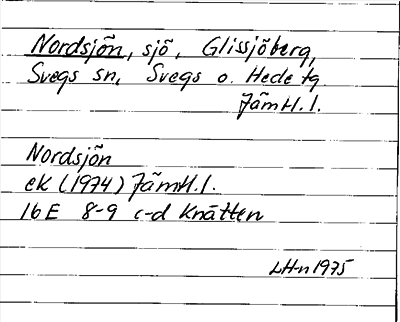 Nordsjön, sjö, Glissjöberg,
Svegs sn, Svegs o. Hede tg
Jämtl. l.
Nordsjön
ek (1974) Jämtl. l.
16E 8-9 c-d Knätten
LH-n 1975